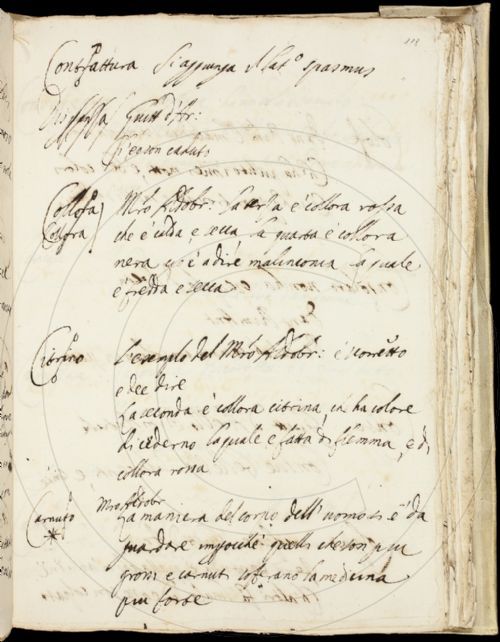 119
Contrattura Si aggiunga il lat.º spasmus
Guitt d'Ar:
caduto
Collora M.ro Aldobr: La terza è collora rossa
Collora che è calda, e secca la quarta è collora
nera cioè a dire malinconia la quale
è fredda e secca
Citrino L'esemplo del M.ro Aldobr: è scorretto
e dee dire
La seconda è collora citrina, ed ha colore
di cederno la quale è fatta di flemma, e di
collora rossa
Carnuto M.ro Aldobr
La maniera del corpo dell'uomo si è da
guardare impocchè quelli che son piu
grossi e carnuti la medicina
piu forte